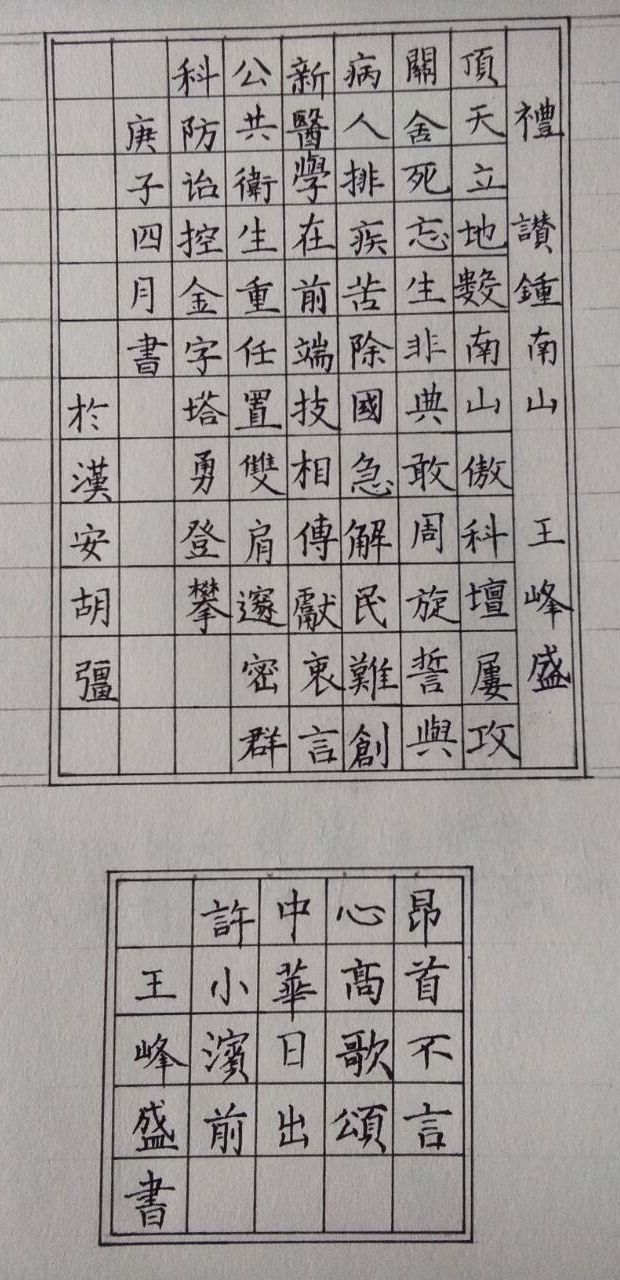 禮 讃鍾南山 王峰盛
頂天立地數南山傲科壇屢攻
關舍死忘生非典敢周旋誓與
病人排疾苦除國急解民難創
新醫學在前端技相傳獻衷言
公共衛生重任置雙肩邃密群
科防治控金字塔勇登攀
庚子四月書
於漢安胡彊
昂首不言
心高歌頌
中華日出
許小濱前
王峰盛書